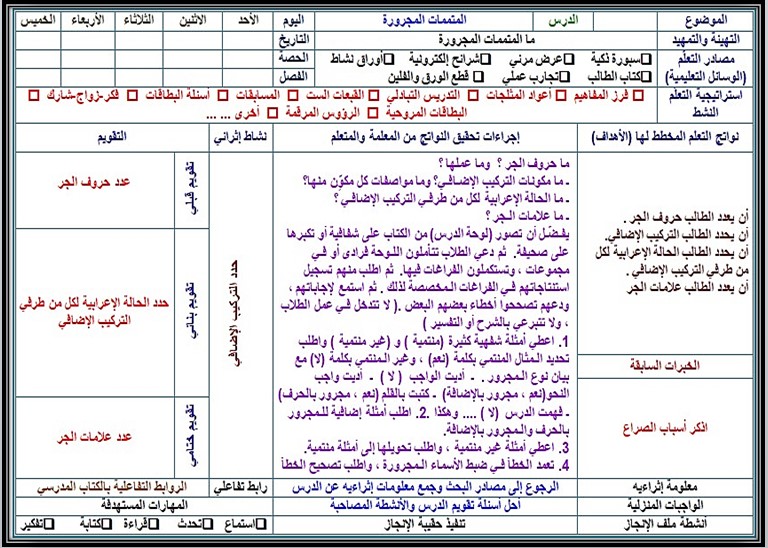 الموضوع الدرس المتممات المجرورة اليوم الأحد الاثنين الثلاثاء الأربعاء الخميس
التهيئة والتمهيد ما المتممات المجرورة التاريخ
مصادر التعلم (الوسائل التعليمية) ☐سبورة ذكية ☐عرض مرئي ☐شرائح إلكترونية ☐أوراق نشاط الحصة
☐كتاب الطالب ☐تجارب عملي ☐ قطع الورق والفلين الفصل
استراتيجية التعلم النشط ☐ فرز المفاهيم ☐ أعواد المثلجات ☐ التدريس التبادلي ☐ القبعات الست ☐ المسابقات ☐ أسئلة البطاقات ☐ فكر-زواج-شارك
☐ البطاقات المروحية ☐ الرؤوس المرقمة ☐ أخرى ... ...
نواتج التعلم المخطط لها (الأهداف) إجراءات تحقيق النواتج من المعلمة والمتعلم نشاط إثرائي التقويم
أن يعدد الطالب حروف الجر .
أن يحدد الطالب التركيب الإضافي.
أن يحدد الطالب الحالة الإعرابية لكل
من طرفي التركيب الإضافي .
أن يعدد الطالب علامات الجر
الخبرات السابقة
اذكر أسباب الصراع
ما حروف الجر ؟ وما عملها ؟
ـ ما مكونات التركيب الإضافي؟ وما مواصفات كل مكوّن منها؟
ـ ما الحالة الإعرابية لكل من طرفي التركيب الإضافي ؟
ـ ما علامات الجر ؟
يفضّل أن تصور (لوحة الدرس) من الكتاب على شفافية أو تكبرها
على صحيفة. ثم دعي الطلاب تتأملون اللوحة فرادى أو في
مجموعات ، وتستكملون الفراغات فيها. ثم اطلب منهم تسجيل
استنتاجاتهم في الفراغات المخصصة لذلك . ثم استمع لإجاباتهم ،
ودعهم تصححوا أخطاء بعضهم البعض .( لا تتدخل في عمل الطلاب
، ولا تتبرعي بالشرح أو التفسير )
1. اعطي أمثلة شفهية كثيرة (منتمية ) و (غير منتمية ) واطلب
تحديد المثال المنتمي بكلمة (نعم) ، وغير المنتمي بكلمة (لا) مع
بيان نوع المجرور . ـ أديت الواجب ( لا ) ـ أديت واجب
النحو(نعم ، مجرور بالإضافة) ـ كتبت بالقلم (نعم ، مجرور بالحرف)
ـ فهمت الدرس (لا ) .... وهكذا .2. اطلب أمثلة إضافية للمجرور
بالحرف والمجرور بالإضافة.
3. اعطي أمثلة غير منتمية ، واطلب تحويلها إلى أمثلة منتمية.
4. تعمد الخطأ في ضبط الأسماء المجرورة ، واطلب تصحيح الخطأ
حدد التركيب الإضافي
تقويم قبلي
عدد حروف الجر
تقويم بنائي
حدد الحالة الإعرابية لكل من طرفي
التركيب الإضافي
تقويم ختامي
عدد علامات الجر
معلومة إثرائيه الرجوع إلى مصادر البحث وجمع معلومات إثرائيه عن الدرس رابط تفاعلي الروابط التفاعلية بالكتاب المدرسي
الواجبات المنزلية أحل أسئلة تقويم الدرس والأنشطة المصاحبة المهارات المستهدفة
أنشطة ملف الإنجاز تنفيذ حقيبة الإنجاز ☐استماع ☐تحدث ☐قراءة ☐كتابة ☐تفكير